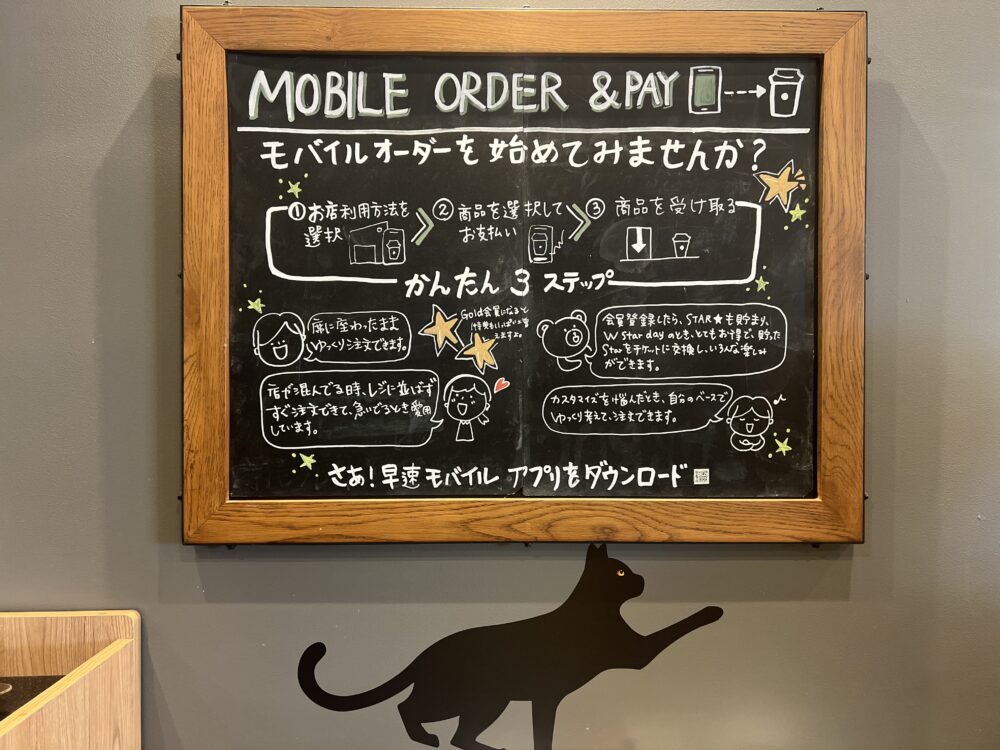 MOBILE ORDER & PAY
モバイルオーダーを始めてみませんか？
① お店利用方法を
選択
② 商品を選択して
お支払い
③ 商品を受け取る
かんたん 3 ステップ
席に座ったまま
ゆっくり注文できます。
Gold会員になると
特典もいっぱい
えますよ。
会員登録したら、STAR★も貯まり、
W Star dayのとき、とてもお得で、貯った
Starをチケットに交換し、いろんな楽しみ
ができます。
店が混んでる時、レジに並ばず
すぐ注文できて、急いでるとき愛用
しています。
カスタマイズを悩んだとき、自分のペースで
ゆっくり考えて、注文できます。
さあ！早速モバイル アプリをダウンロード